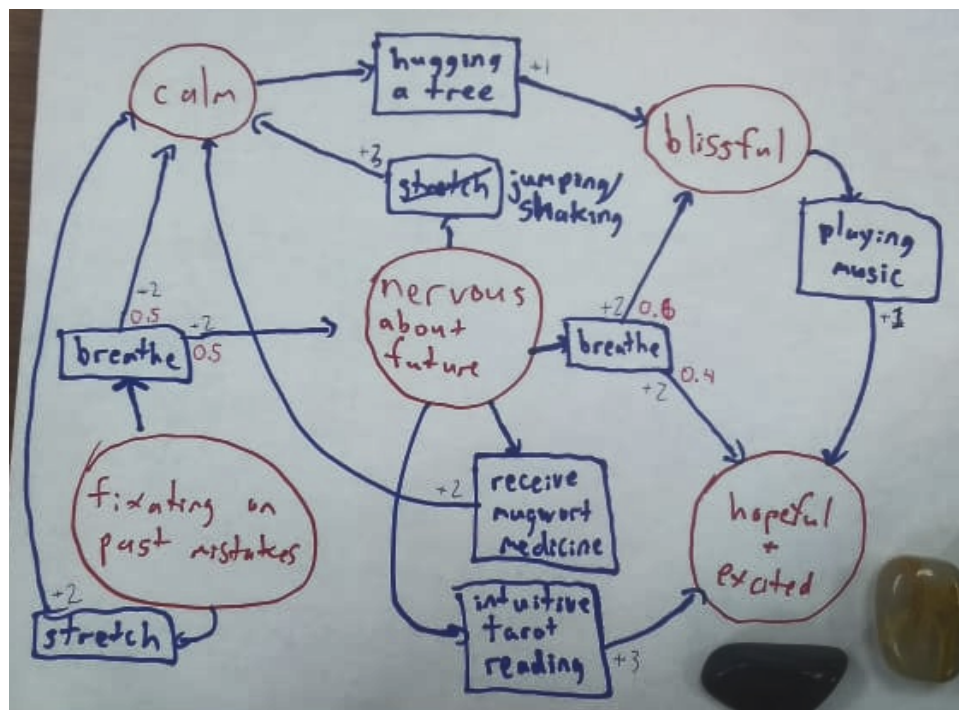 calm
hugging
a tree
+1
blissful
+3
stretch
jumping/
shaking
playing
music
+1
nervous
about
future
+2
0.5
+2
0.5
breathe
+2
0.6
breathe
0.4
+2
fixating on
past mistakes
+2
receive
mugwort
medicine
hopeful
+
excited
+2
stretch
intuitive
tarot
reading
+3